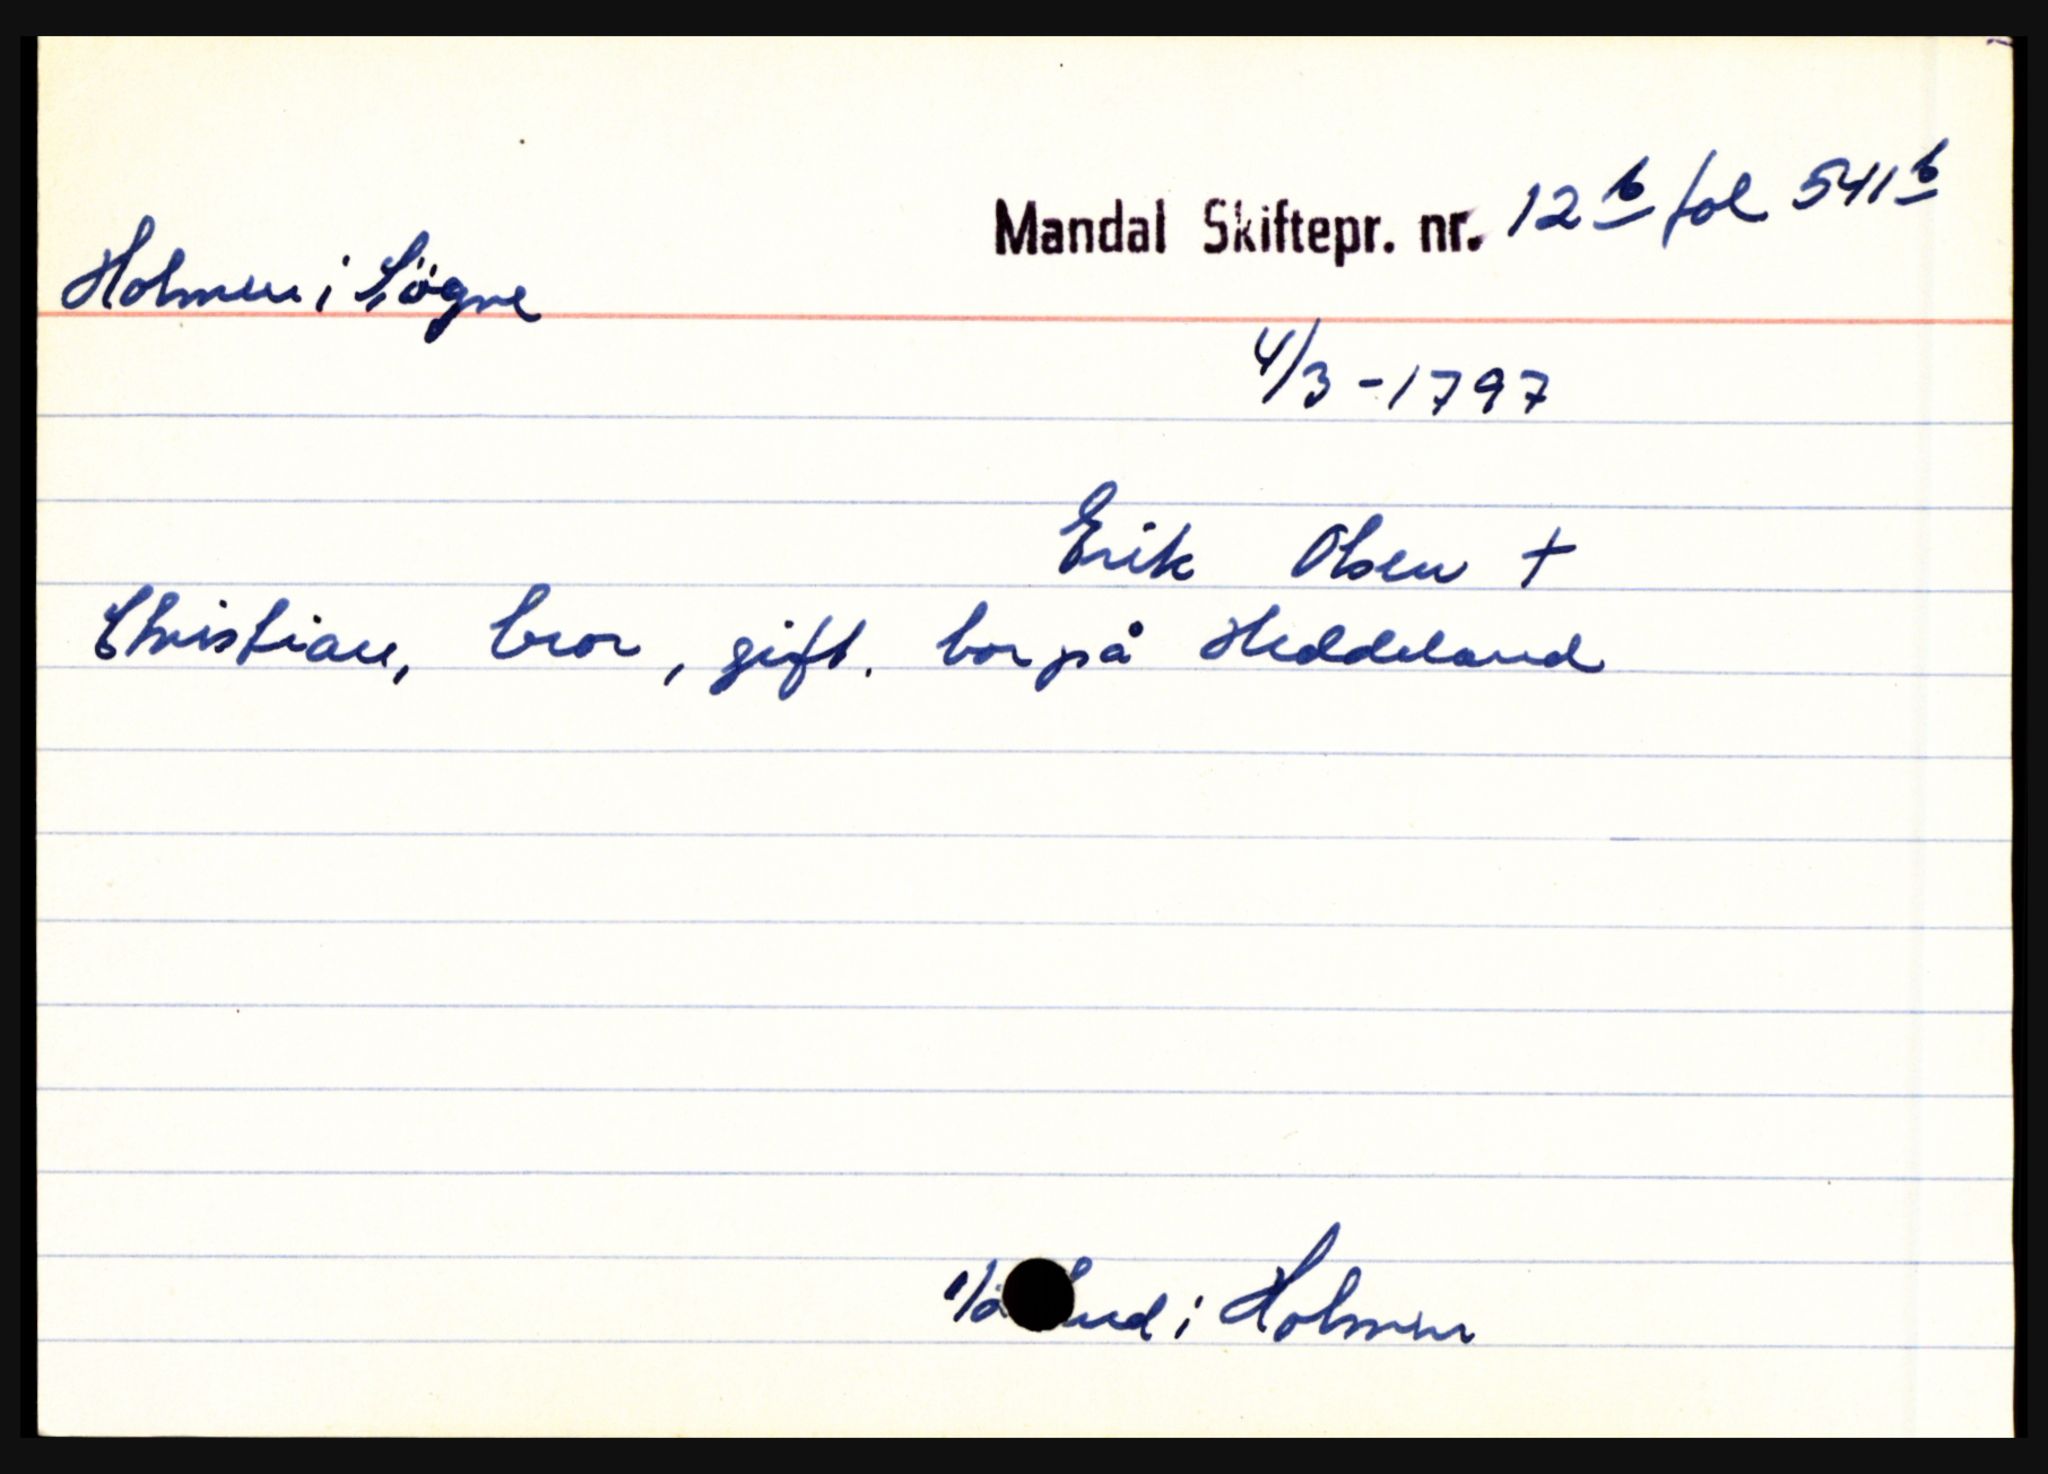 Mandal Skiftepr. nr. 12 b fol 541 b
Holmen i Søgne
4/3-1797
Erik Olsen +
Christian, bror, gift. bor på Heddeland
i Holmen